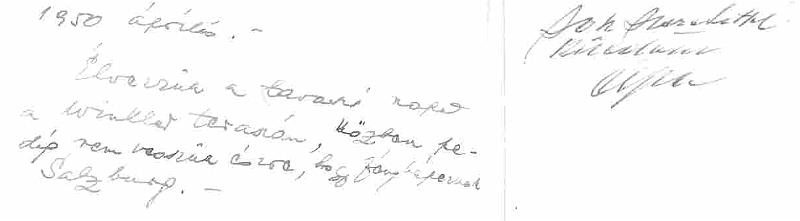 1950 április. –
Élvezzük a tavaszi napot
a Winkler teraszán, közben pe-
dig nem vesszük észre, hogy fényképeznek
Salzburg. –
Sok szeretettel